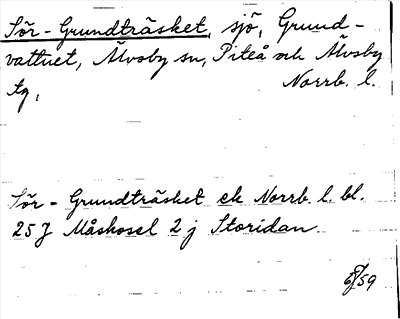 Sör-Grundträsket, sjö, Grund-
vattnet, Älvsby sn, Piteå och Älvsby
tg, Norrb. l.
Sör-Grundträsket ek Norrb. l. bl.
25 J Måskosel 2 j Storidan
/59